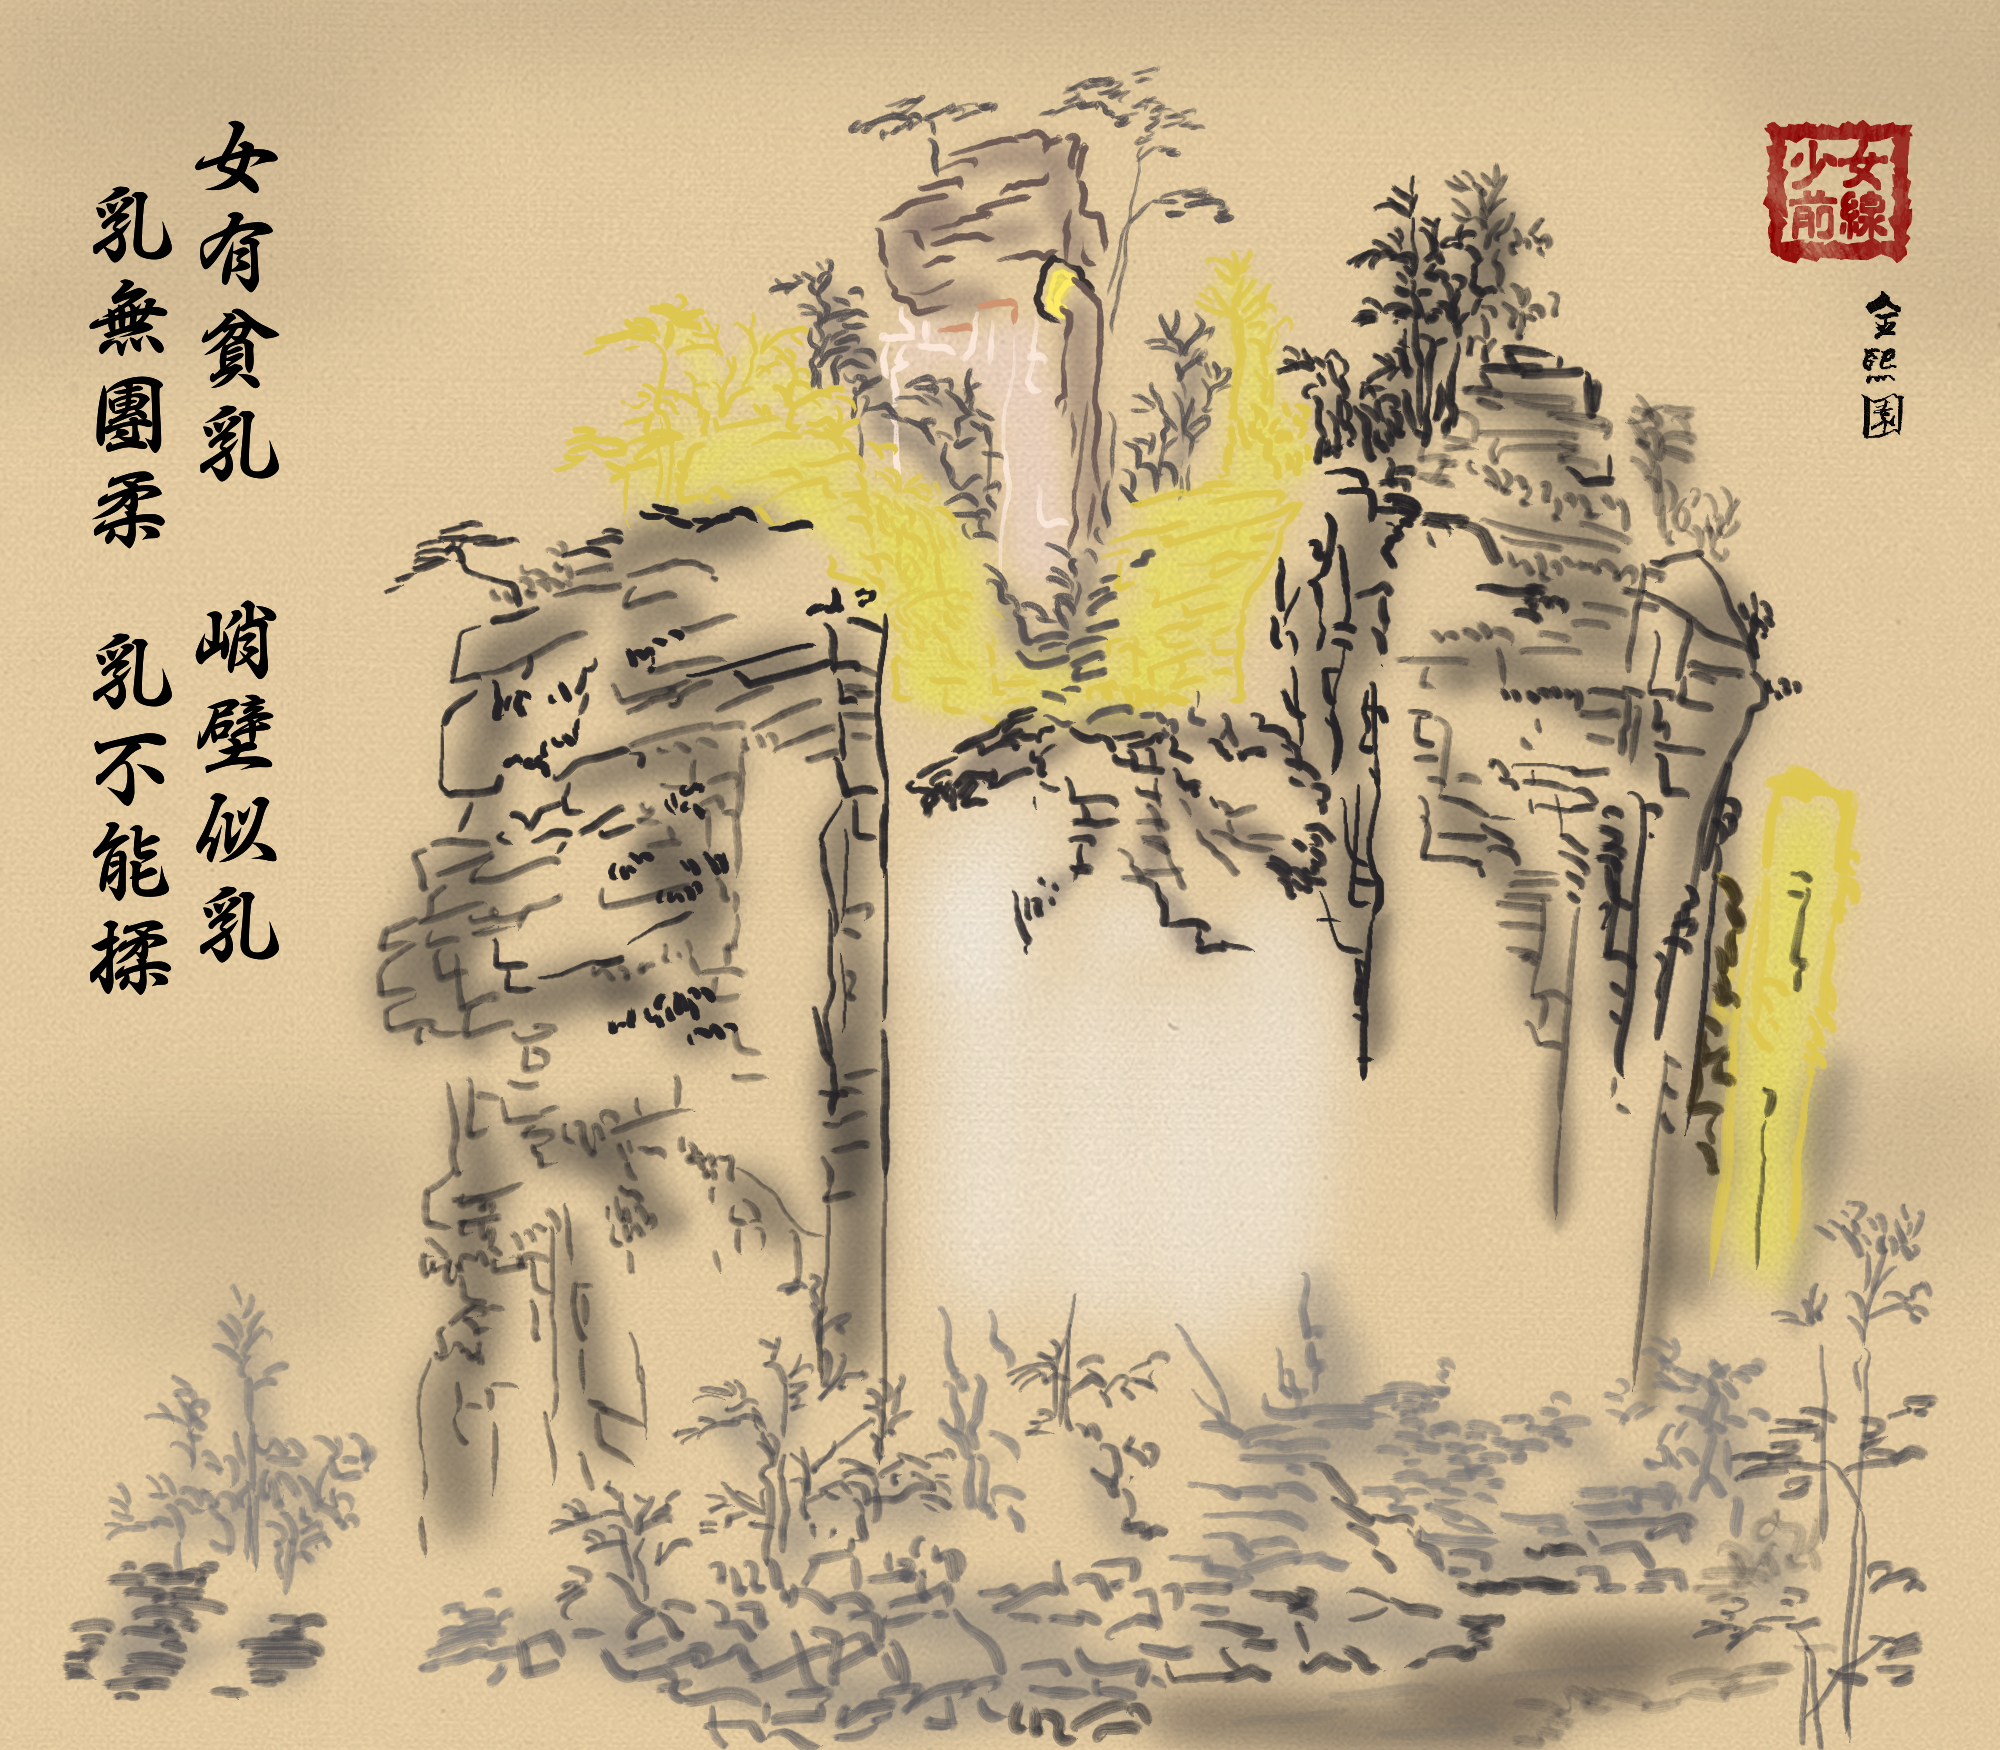 少女
前線
金熙園
女有貧乳 峭壁似乳
乳無團柔 乳不能揉